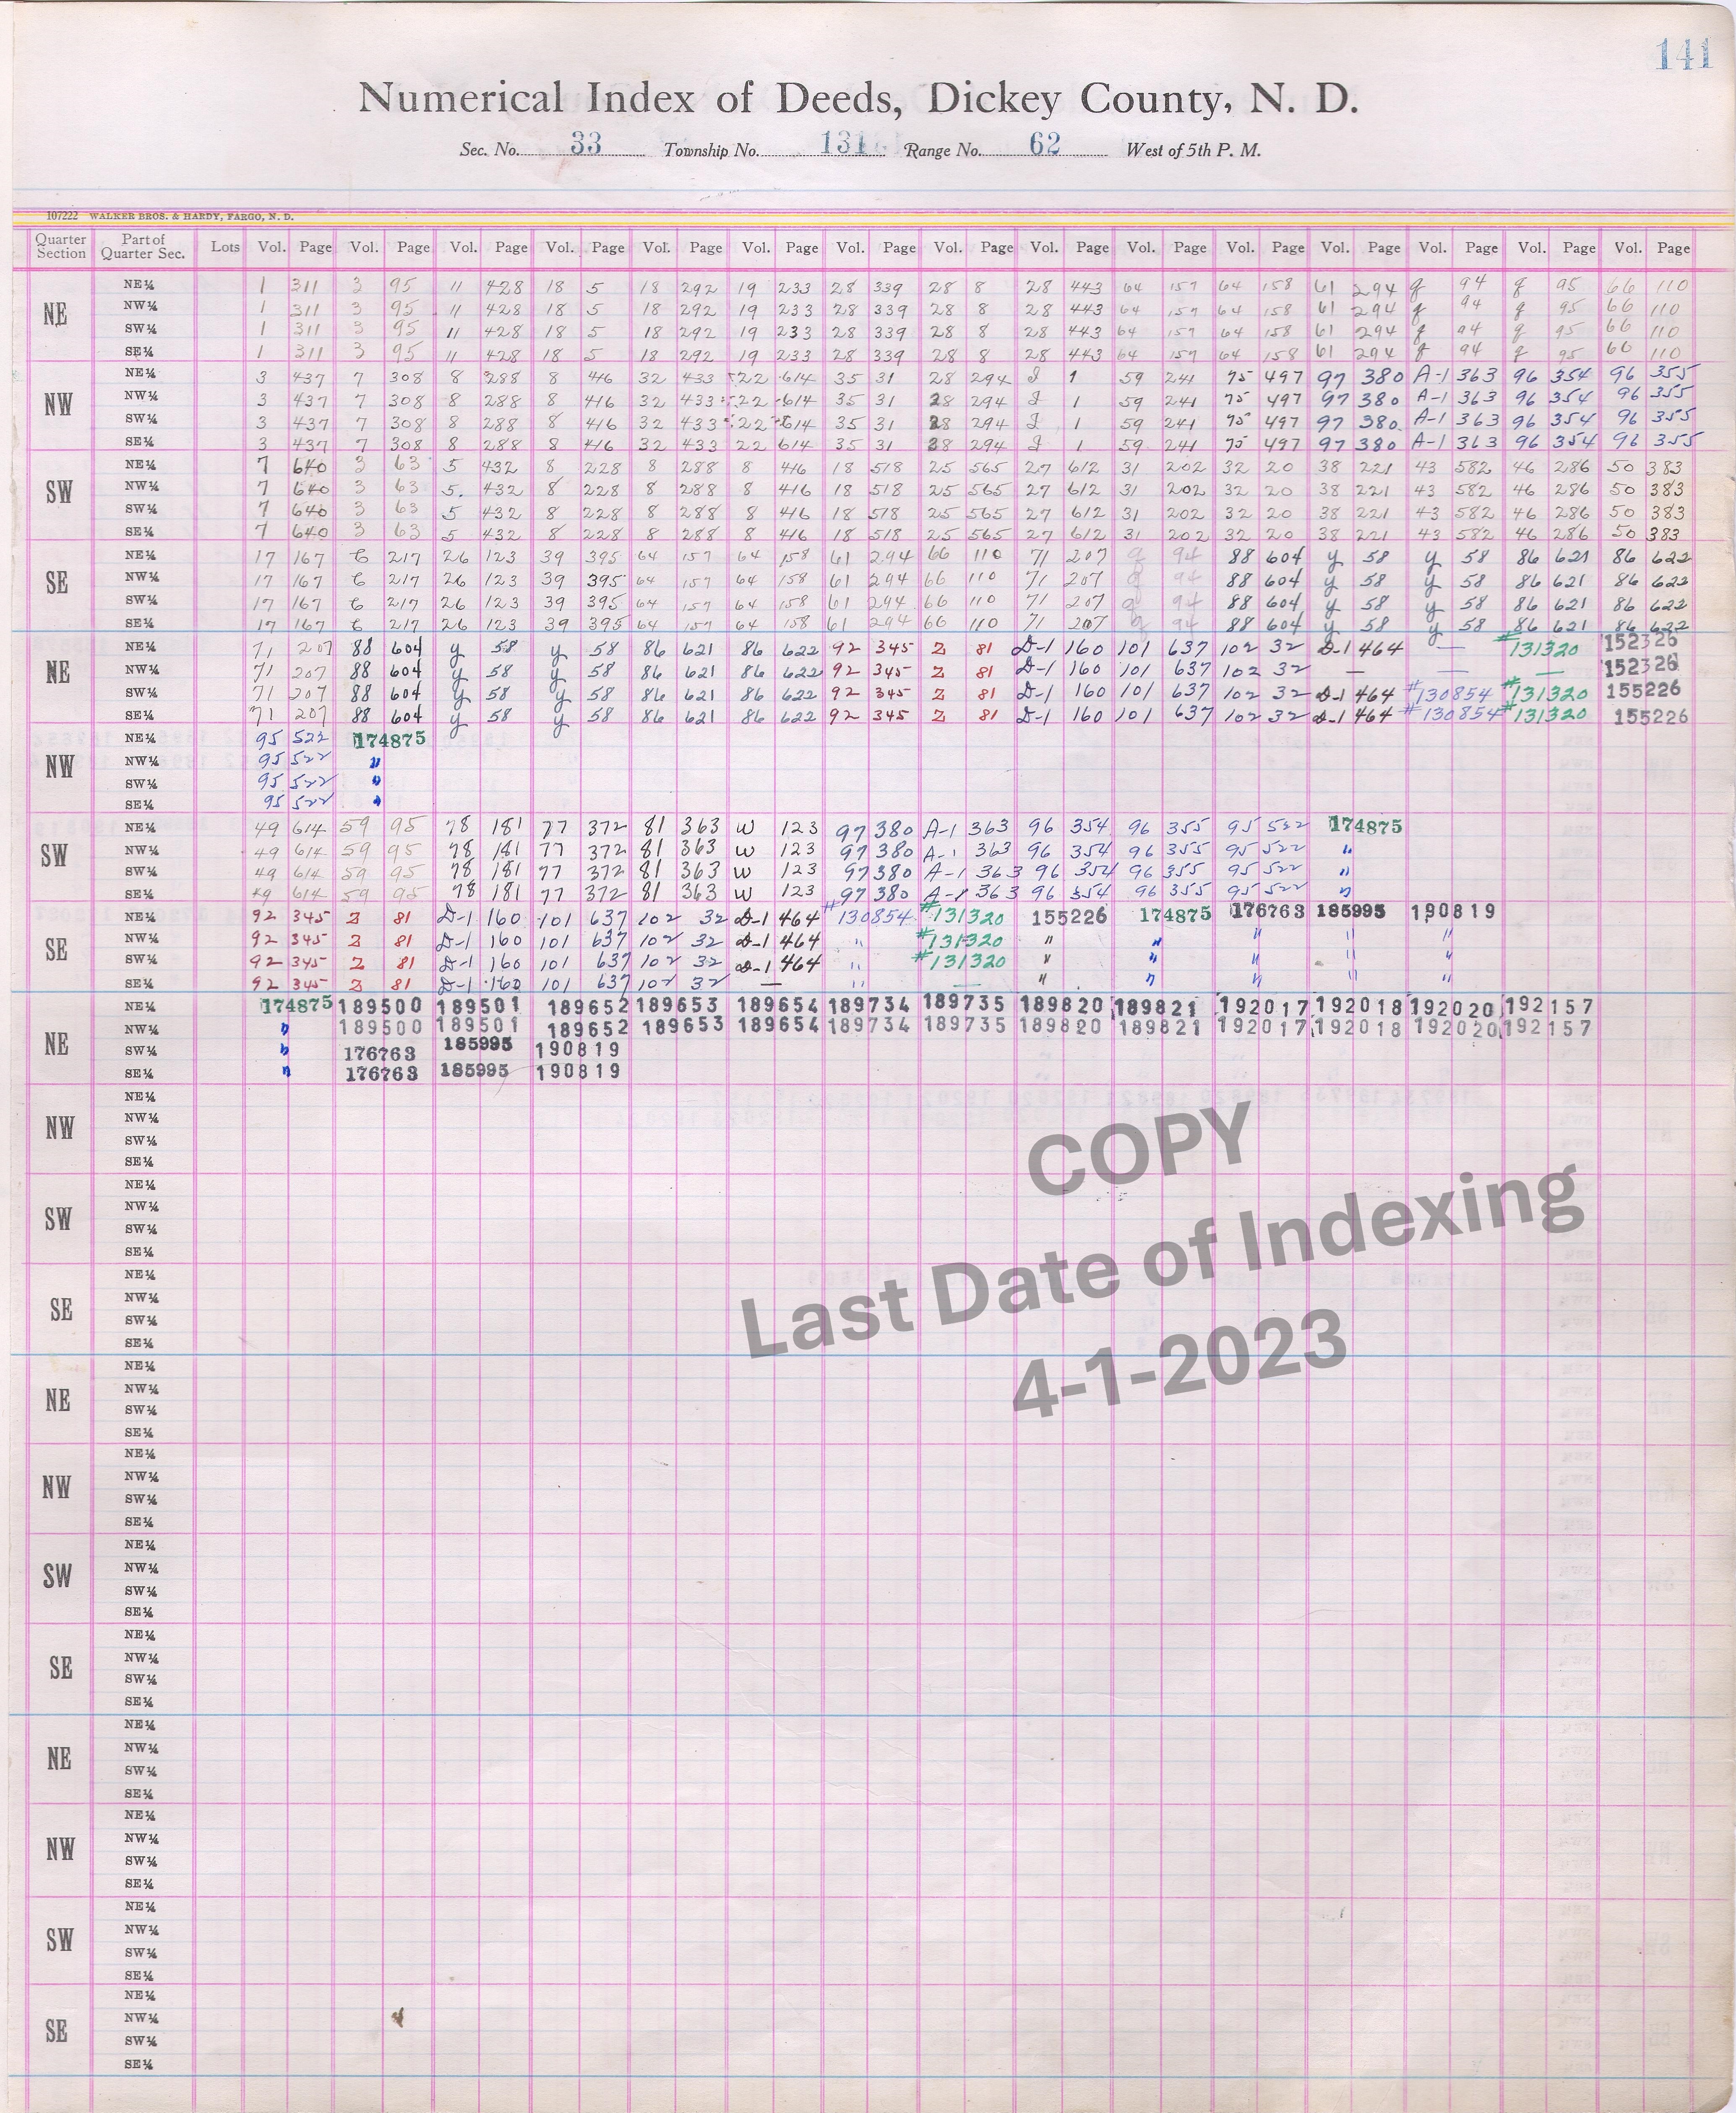 141
Numerical Index of Deeds, Dickey County, N. D.
Sec. No. 33 Township No. 131 Range No. 62 West of 5th P. M.
107222 WALKER BROS. & HARDY, FARGO, N. D.
Quarter Section Part of Quarter Sec. Lots Vol. Page Vol. Page Vol. Page Vol. Page Vol. Page Vol. Page Vol. Page Vol. Page Vol. Page Vol. Page Vol. Page Vol. Page Vol. Page Vol. Page Vol. Page
NE
NE¼ 1 311 3 95 11 428 18 5 18 292 19 233 28 339 28 8 28 443 64 157 64 158 61 294 g 94 g 95 66 110
NW¼ 1 311 3 95 11 428 18 5 18 292 19 233 28 339 28 8 28 443 64 157 64 158 61 294 g 94 g 95 66 110
SW¼ 1 311 3 95 11 428 18 5 18 292 19 233 28 339 28 8 28 443 64 157 64 158 61 294 g 94 g 95 66 110
SE¼ 1 311 3 95 11 428 18 5 18 292 19 233 28 339 28 8 28 443 64 157 64 158 61 294 g 94 g 95 66 110
NW
NE¼ 3 437 7 308 8 288 8 416 32 433 22 614 35 31 28 294 I 1 59 241 75 497 97 380 A-1 363 96 354 96 355
NW¼ 3 437 7 308 8 288 8 416 32 433 22 614 35 31 28 294 I 1 59 241 75 497 97 380 A-1 363 96 354 96 355
SW¼ 3 437 7 308 8 288 8 416 32 433 22 614 35 31 28 294 I 1 59 241 75 497 97 380 A-1 363 96 354 96 355
SE¼ 3 437 7 308 8 288 8 416 32 433 22 614 35 31 28 294 I 1 59 241 75 497 97 380 A-1 363 96 354 96 355
SW
NE¼ 7 640 3 63 5 432 8 228 8 288 8 416 18 518 25 565 27 612 31 202 32 20 38 221 43 582 46 286 50 383
NW¼ 7 640 3 63 5. 432 8 228 8 288 8 416 18 518 25 565 27 612 31 202 32 20 38 221 43 582 46 286 50 383
SW¼ 7 640 3 63 5 432 8 228 8 288 8 416 18 518 25 565 27 612 31 202 32 20 38 221 43 582 46 286 50 383
SE¼ 7 640 3 63 5 432 8 228 8 288 8 416 18 518 25 565 27 612 31 202 32 20 38 221 43 582 46 286 50 383
SE
NE¼ 17 167 C 217 26 123 39 395 64 157 64 158 61 294 66 110 71 207 g 94 88 604 y 58 y 58 86 621 86 622
NW¼ 17 167 C 217 26 123 39 395 64 157 64 158 61 294 66 110 71 207 g 94 88 604 y 58 y 58 86 621 86 622
SW¼ 17 167 C 217 26 123 39 395 64 157 64 158 61 294 66 110 71 207 g 94 88 604 y 58 y 58 86 621 86 622
SE¼ 17 167 C 217 26 123 39 395 64 157 64 158 61 294 66 110 71 207 g 94 88 604 y 58 y 58 86 621 86 622
NE
NE¼ 71 207 88 604 y 58 y 58 86 621 86 622 92 345 Z 81 D-1 160 101 637 102 32 D-1 464 — #131320 152326
NW¼ 71 207 88 604 y 58 y 58 86 621 86 622 92 345 Z 81 D-1 160 101 637 102 32 — — — 152326
SW¼ 71 207 88 604 y 58 y 58 86 621 86 622 92 345 Z 81 D-1 160 101 637 102 32 D-1 464 #130854 #131320 155226
SE¼ 71 207 88 604 y 58 y 58 86 621 86 622 92 345 Z 81 D-1 160 101 637 102 32 D-1 464 #130854 #131320 155226
NW
NE¼ 95 522 174875
NW¼ 95 522 "
SW¼ 95 522 "
SE¼ 95 522 "
SW
NE¼ 49 614 59 95 78 181 77 372 81 363 W 123 97 380 A-1 363 96 354 96 355 95 522 174875
NW¼ 49 614 59 95 78 181 77 372 81 363 W 123 97 380 A-1 363 96 354 96 355 95 522 "
SW¼ 49 614 59 95 78 181 77 372 81 363 W 123 97 380 A-1 363 96 354 96 355 95 522 "
SE¼ 49 614 59 95 78 181 77 372 81 363 W 123 97 380 A-1 363 96 354 96 355 95 522 "
SE
NE¼ 92 345 Z 81 D-1 160 101 637 102 32 D-1 464 #130854 #131320 155226 174875 176763 185995 190819
NW¼ 92 345 Z 81 D-1 160 101 637 102 32 D-1 464 " #131320 " " " " "
SW¼ 92 345 Z 81 D-1 160 101 637 102 32 D-1 464 " #131320 " " " " "
SE¼ 92 345 Z 81 D-1 160 101 637 102 32 — " — " " " " "
NE
NE¼ 174875 189500 189501 189652 189653 189654 189734 189735 189820 189821 192017 192018 192020 192157
NW¼ " 189500 189501 189652 189653 189654 189734 189735 189820 189821 192017 192018 192020 192157
SW¼ " 176763 185995 190819
SE¼ " 176763 185995 190819
NW
NE¼
NW¼
SW¼
SE¼
SW
NE¼
NW¼
SW¼
SE¼
SE
NE¼
NW¼
SW¼
SE¼
NE
NE¼
NW¼
SW¼
SE¼
NW
NE¼
NW¼
SW¼
SE¼
SW
NE¼
NW¼
SW¼
SE¼
SE
NE¼
NW¼
SW¼
SE¼
NE
NE¼
NW¼
SW¼
SE¼
NW
NE¼
NW¼
SW¼
SE¼
SW
NE¼
NW¼
SW¼
SE¼
SE
NE¼
NW¼
SW¼
SE¼
COPY
Last Date of Indexing
4-1-2023